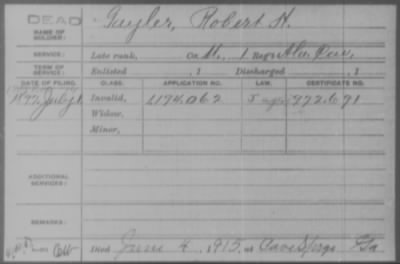 DEAD
NAME OF SOLDIER: Guyler, Robert H.
SERVICE: Late rank, Co. M, 1 Reg't Ala. Cav.
TERM OF SERVICE: Enlisted , 1 Discharged , 1
DATE OF FILING. CLASS. APPLICATION NO. LAW. CERTIFICATE NO.
1897, July 1 Invalid, 1194.062 772.671
Widow,
Minor,
ADDITIONAL SERVICES:
REMARKS:
Died June 4, 1915, at Cave Springs Ga